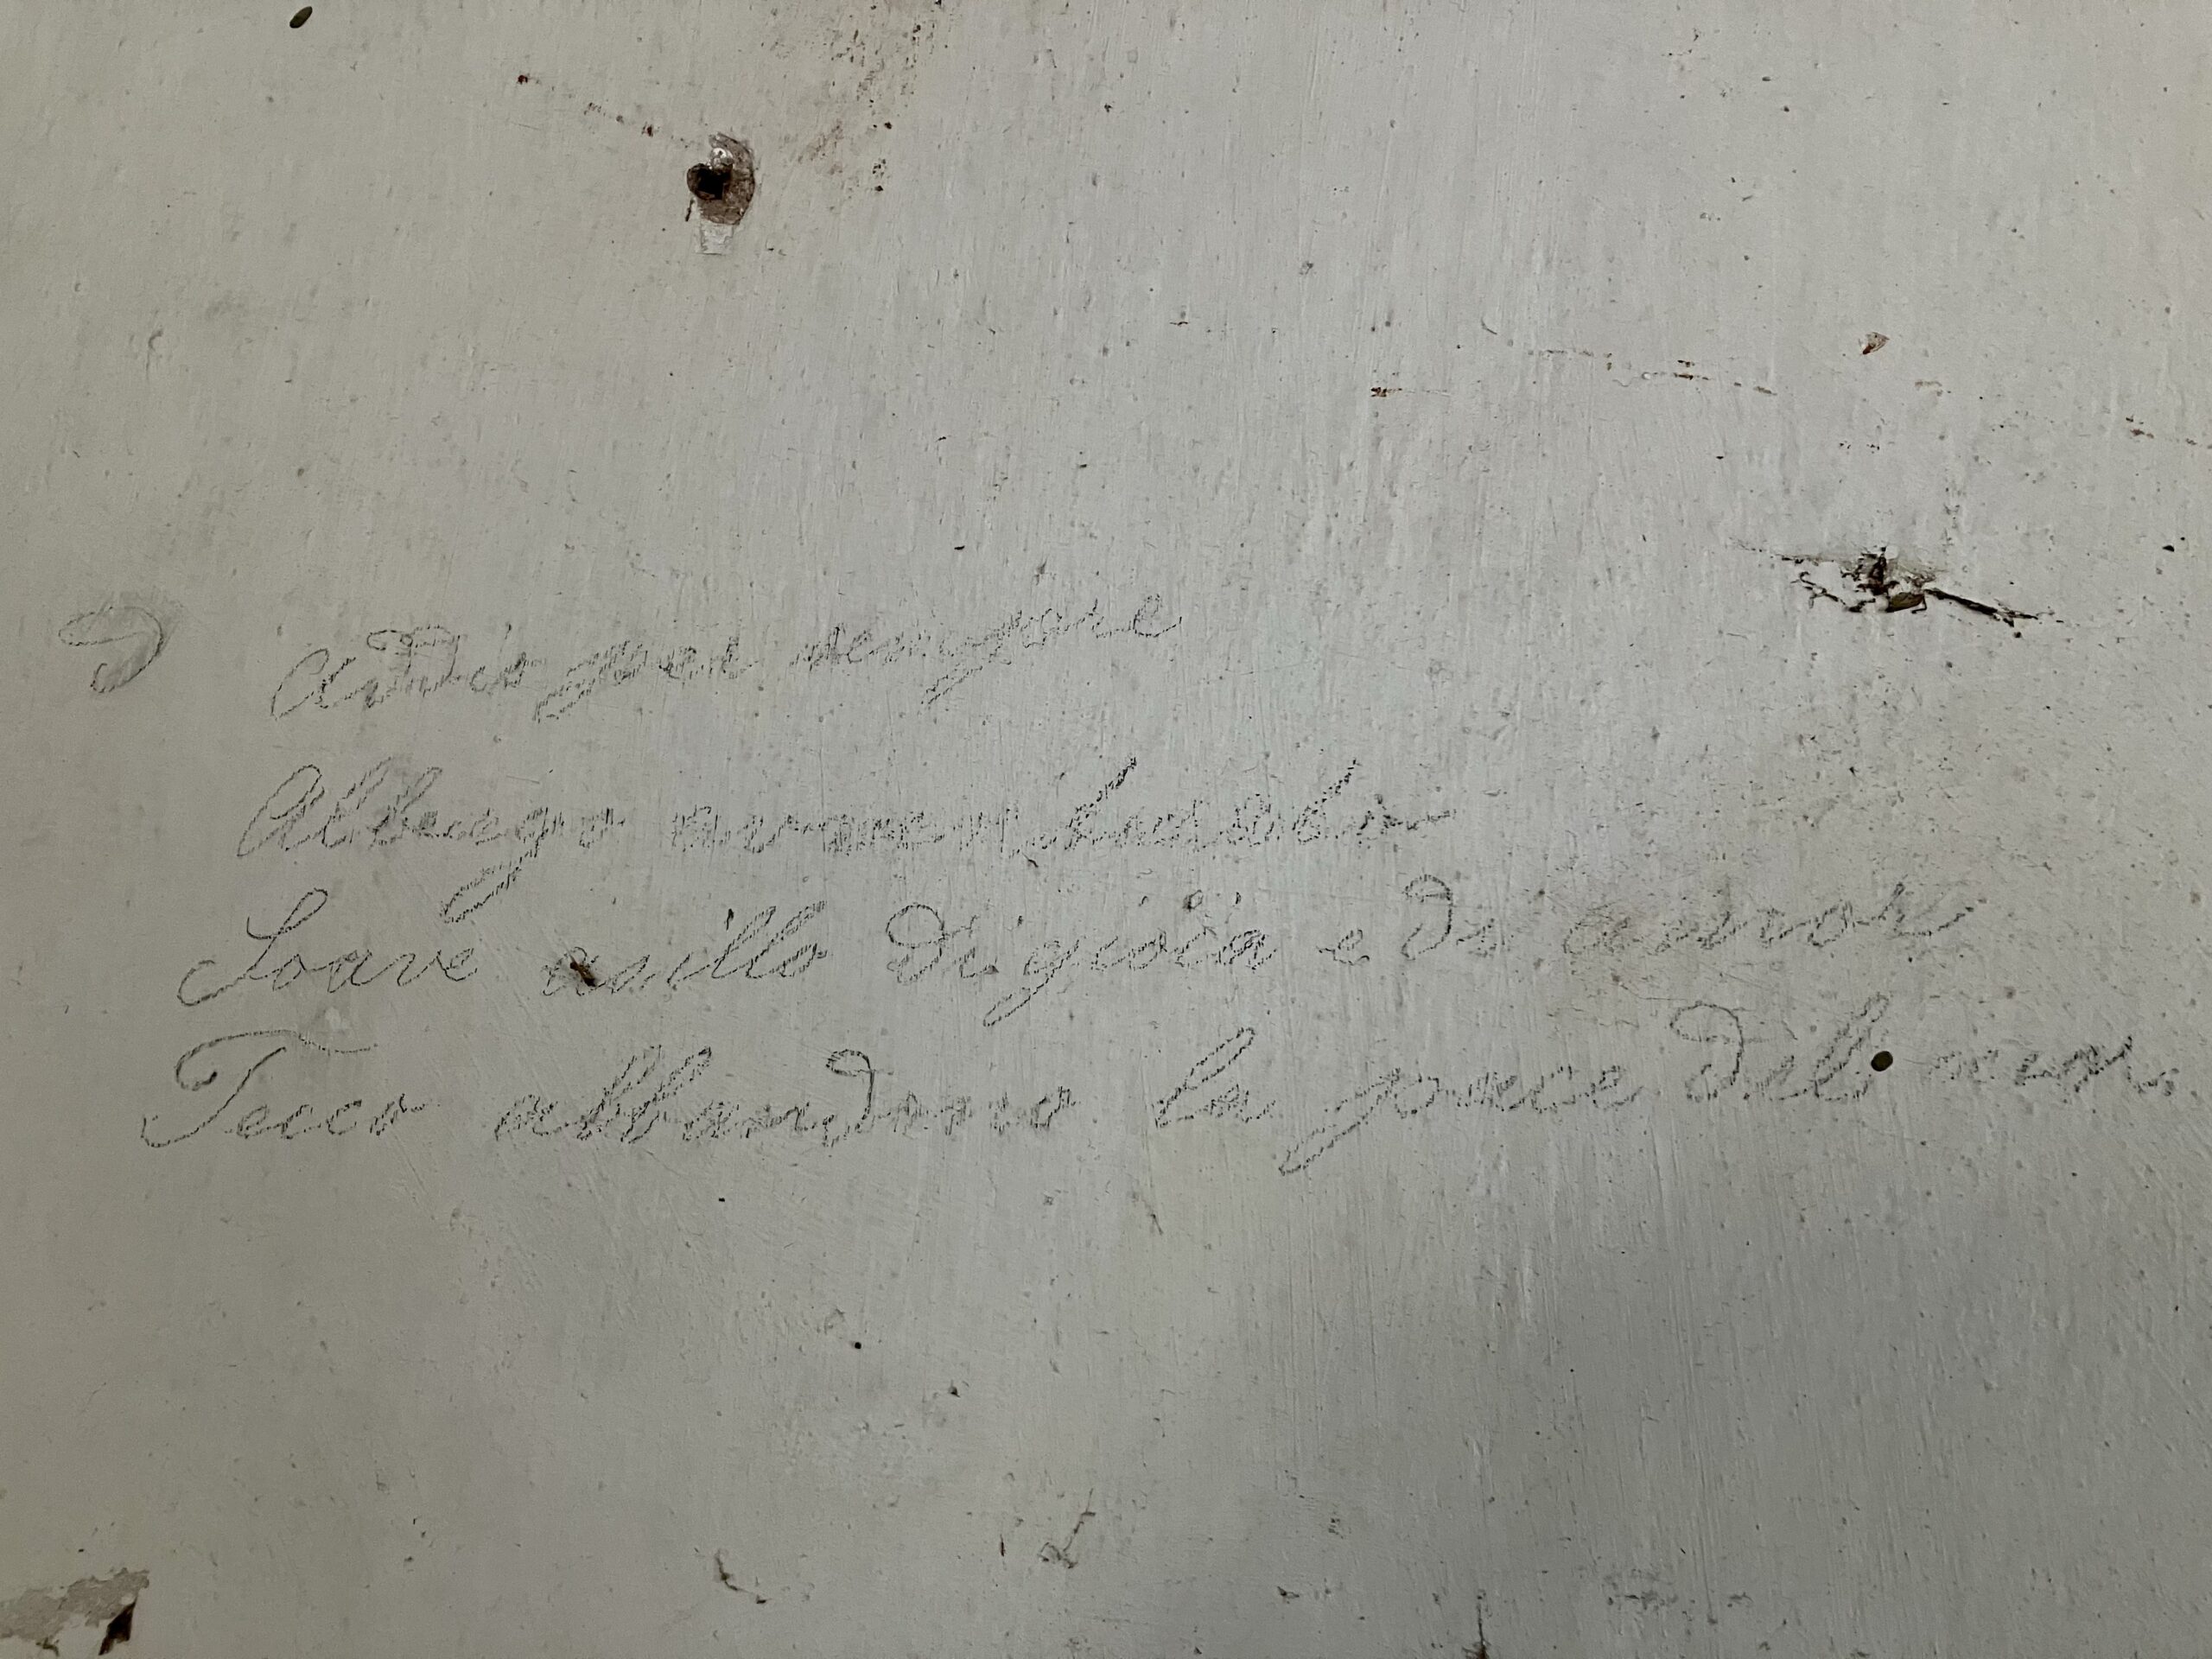 Addio per sempre
Albergo avventurato
Soave asillo di gioia e di amor
Teco abbandono la pace del cuor